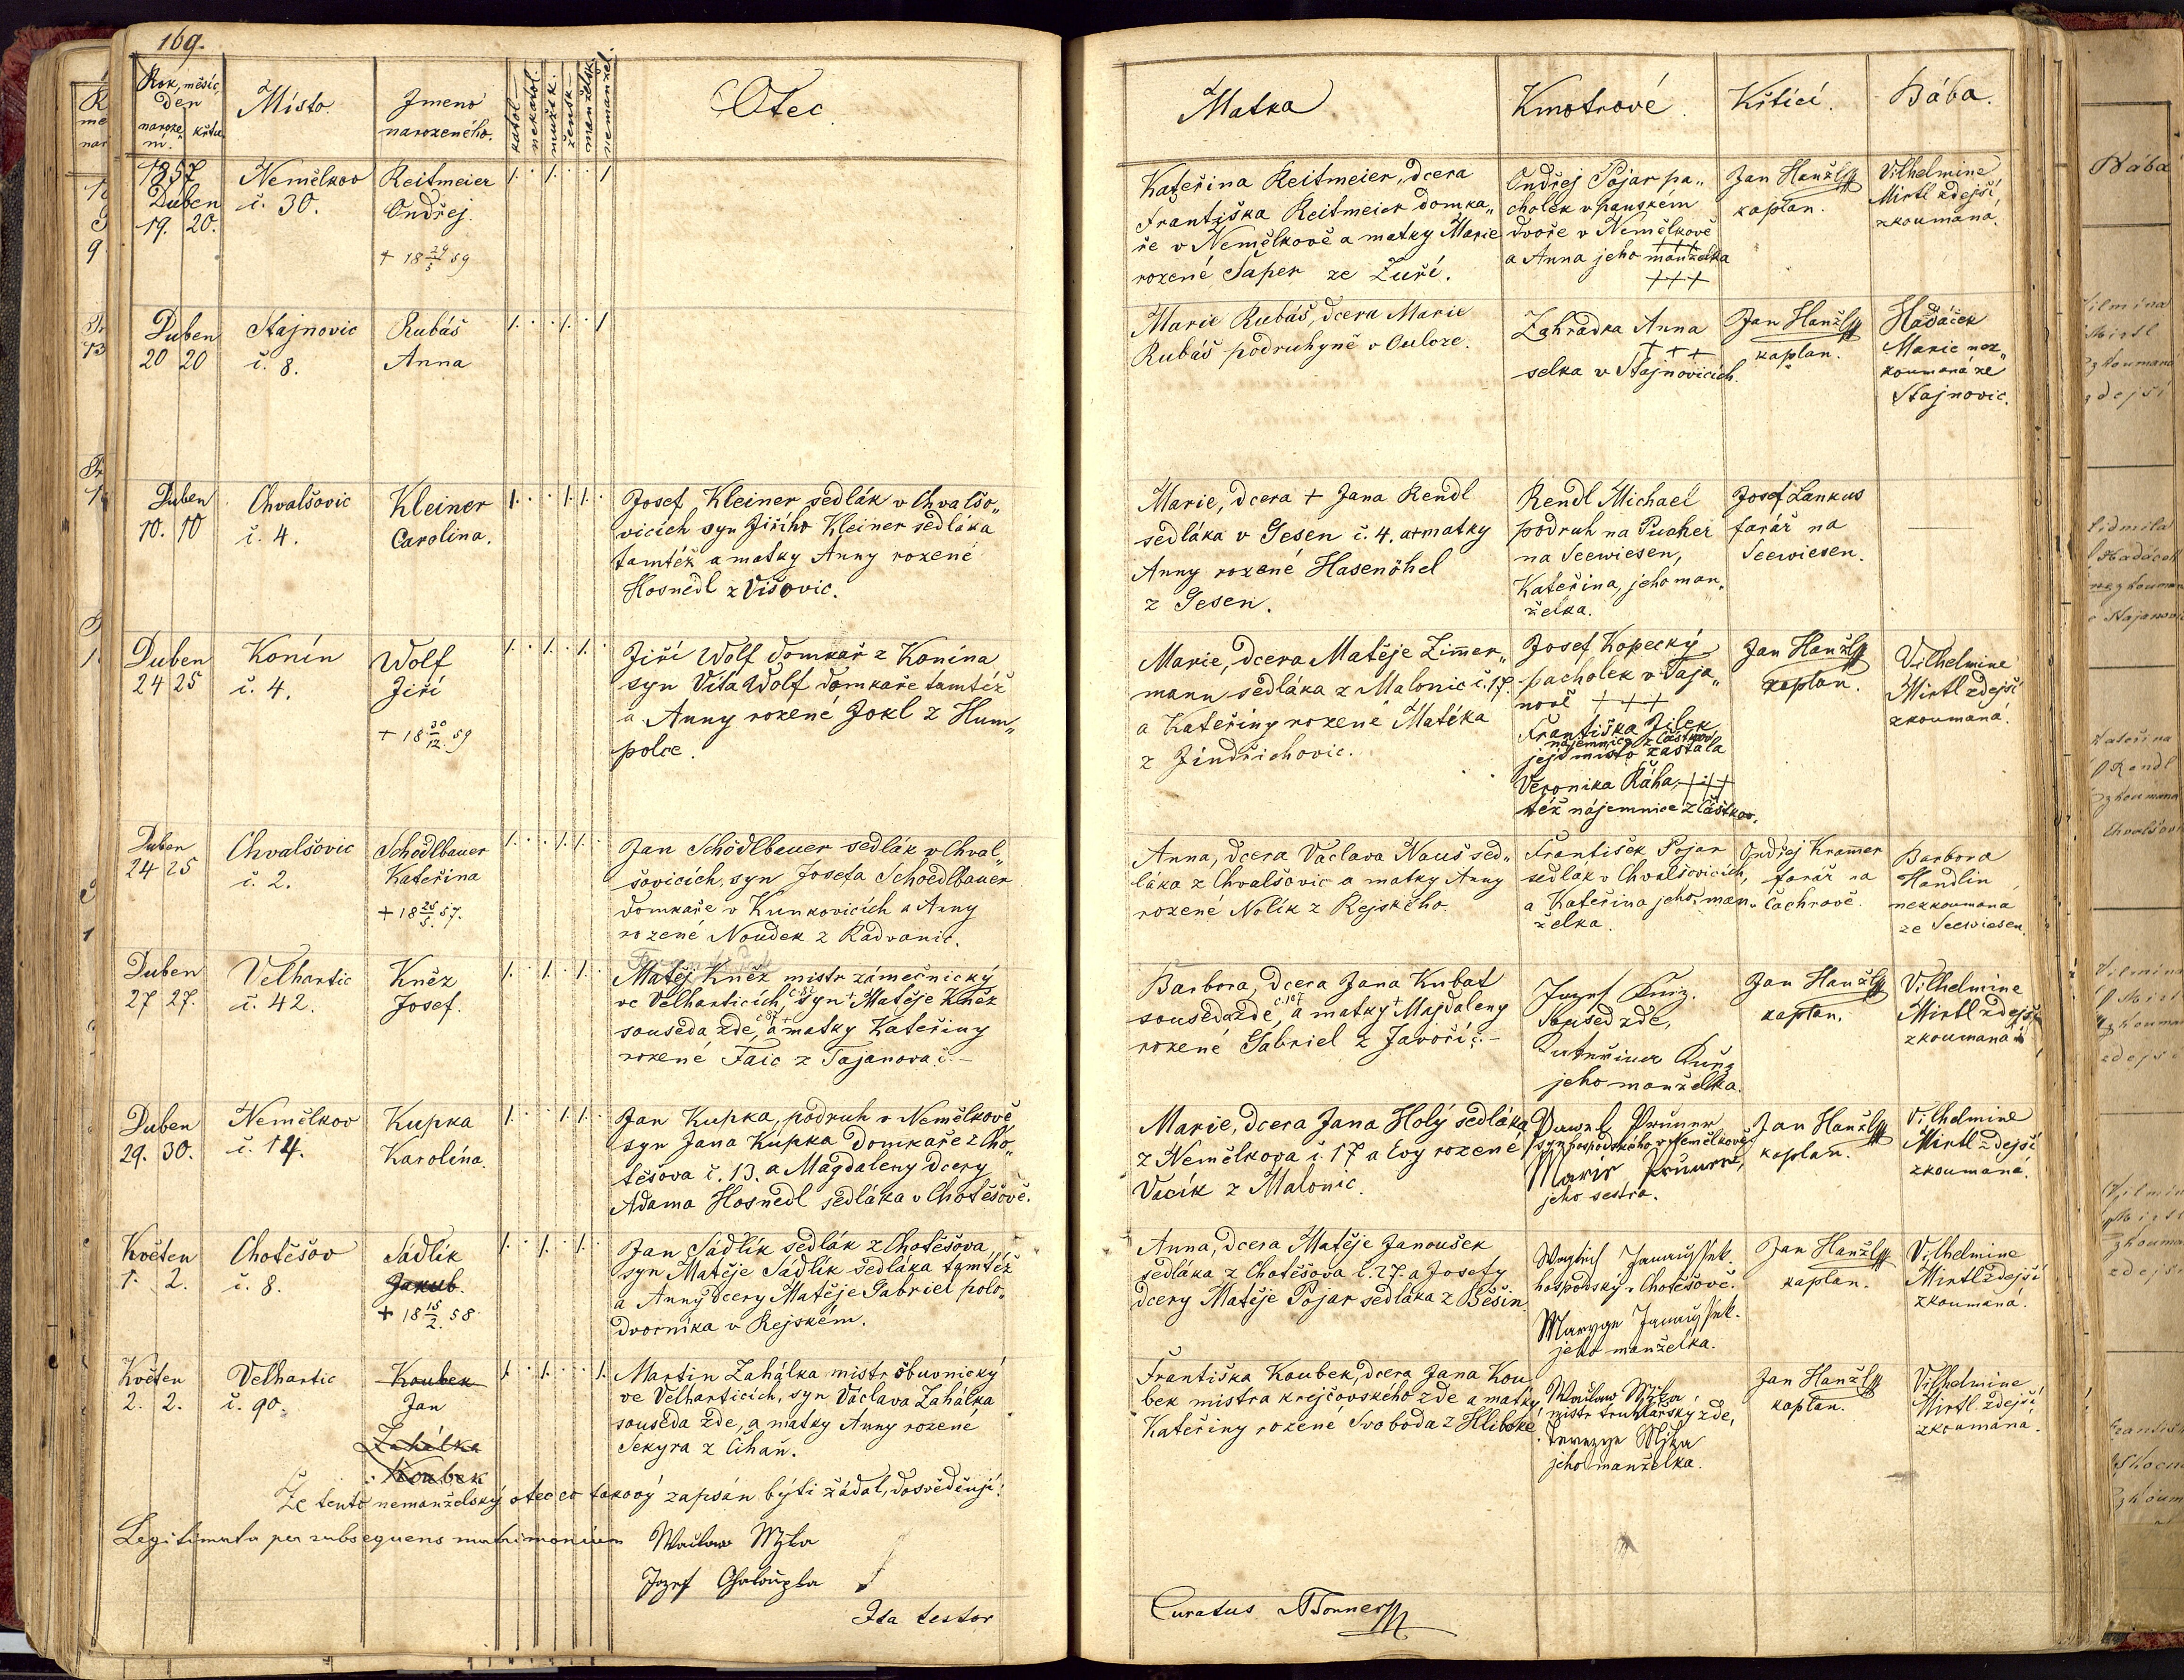 169.
Rok, měsíc,
den
naroze
ní.
křtu
Místo.
Jmeno
narozeného.
katol.
nekatol.
mužsk.
žensk.
manželsk.
nemanžel.
Otec
Matka
Kmotrové
Křtící.
Bába.
1857
Duben
19. 20.
Nemělkov
č. 30.
Reitmeier
Ondřej.
+ 18 29/5 59
Kateřina Reitmeier, dcera
Františka Reitmeier domka„
ře v Nemělkově a matky Marie
rozené Šaper ze Zuří.
Ondřej Pojar pa„
cholek v panském
dvoře v Nemělkově
+++
a Anna jeho manželka
+++
Jan Hanžl
kaplan.
Vilhelmine
Mirtl zdejší,
zkoumaná.
Duben
20 20
Stajnovic
č. 8.
Rubáš
Anna
Marie Rubáš, dcera Marie
Rubáš podruhyně v Ouloze.
Zahradka Anna
+++
selka v Stajnovicích.
Jan Hanžl
kaplan.
Hadáček
Marie nez„
koumaná ze
Stajnovic.
Duben
10. 10
Chvalšovic
č. 4.
Kleiner
Carolina.
Josef Kleiner sedlák v Chvalšo„
vicích syn Jiřího Kleiner sedláka
tamtéž a matky Anny rozené
Hosnedl z Višovic.
Marie, dcera + Jana Rendl
sedláka v Gesen č. 4. a + matky
Anny rozené Hasenöhel
z Gesen.
Rendl Michael
podruh na Pucher
na Seewiesen,
Kateřina, jeho man„
želka.
Josef Lankus
farář na
Seewiesen.
Duben
24 25
Konín
č. 4.
Wolf
Jiří
+ 18 30/12 59
Jiří Wolf domkař z Konína
syn Víta Wolf domkaře tamtéž
a Anny rozené Jokl z Hum„
polce.
Marie, dcera Matěje Zimmer„
mann sedláka z Malonic č. 17.
a Kateřiny rozené Matéka
z Jindřichovic.
Josef Kopecký
pacholek v Taja„
nově +++
Františka Jilek
nájemnice z Částkov
její místo zastala
Veronika Ráha, +++
též nájemnice z Částkov.
Jan Hanžl
kaplan.
Vilhelmine
Mirtl zdejší
zkoumaná.
Duben
24 25
Chvalšovic
č. 2.
Schödlbauer
Kateřina
+ 18 25/5 57.
Jan Schödlbauer sedlák v Chval„
šovicích, syn Josefa Schoedlbauer
domkaře v Kunkovicích a Anny
rozené Noudek z Radvanic.
Anna, dcera Václava Nauš sed„
láka z Chvalšovic a matky Anny
rozené Nolík z Rejského.
František Pojar
sedlák v Chvalšovicích,
a Kateřina jeho man„
želka.
Ondřej Krammer
farář na
Čachrově.
Barbora
Handlin
nezkoumaná
ze Seewiesen.
Duben
27 27.
Velhartic
č. 42.
Kněz
Josef.
Matěj Kněz mistr zámečnický
ve Velharticích, syn + Matěje Kněz
souseda zde, č 87 a + matky Kateřiny
rozené Faic z Tajanova č. –
Barbora, dcera Jana Kubat
souseda zde, č. 107 a matky + Majdaleny
rozené Gabriel z Javoří č. –
Soused zde,
jeho manželka.
Jan Hanžl
kaplan.
Vilhelmine
Mirtl zdejší
zkoumaná
Duben
29. 30.
Nemělkov
č. 14.
Kupka
Karolína.
Jan Kupka, podruh v Nemělkově
syn Jana Kupka domkaře z Cho„
těšova č. 13. a Magdaleny dcery
Adama Hosnedl sedláka v Chotěšově.
Marie, dcera Jana Holý sedláka
z Nemělkova č. 17 a Evy rozené
Vacík z Malonic.
Pawel Pruner
syn hospodského v Nemělkově
Marie Pruner,
jeho sestra.
Jan Hanžl
kaplan.
Vilhelmine
Mirtl zdejší
zkoumaná.
Květen
1. 2.
Chotěšov
č. 8.
Sádlík
Jakub.
+ 18 15/2 58.
Jan Sádlík sedlák z Chotěšova,
syn Matěje Sádlík sedláka tamtéž
a Anny dcery Matěje Gabriel polo„
dvorníka v Rejském.
Anna, dcera Matěje Janoušek
sedláka z Chotěšova č. 27. a Josefy
dcery Matěje Pojar sedláka z Běšin
hospodský v Chotěšově.
jeho manželka.
Jan Hanžl
kaplan.
Vilhelmine
Mirtl zdejší
zkoumaná.
Květen
2. 2.
Velhartic
č. 90.
Koubek
Jan
Zahálka
Koubek
Martin Zahálka mistr obuvnický
ve Velharticích, syn Václava Zahálka
souseda zde, a matky Anny rozené
Sekyra z Čihaň.
Františka Koubek, dcera Jana Kou
bek mistra krejčovského zde a matky
Kateřiny rozené Svoboda z Hliboké
mistr truhlářský zde,
jeho manželka.
Jan Hanžl
kaplan.
Vilhelmine
Mirtl zdejší
zkoumaná.
Že tento nemanželský otec co takový zapsán býti žádal, dosvědčují:
Legitimata per subsequens matrimonium
Jozef Chalaupka
Ita testor
Curatus